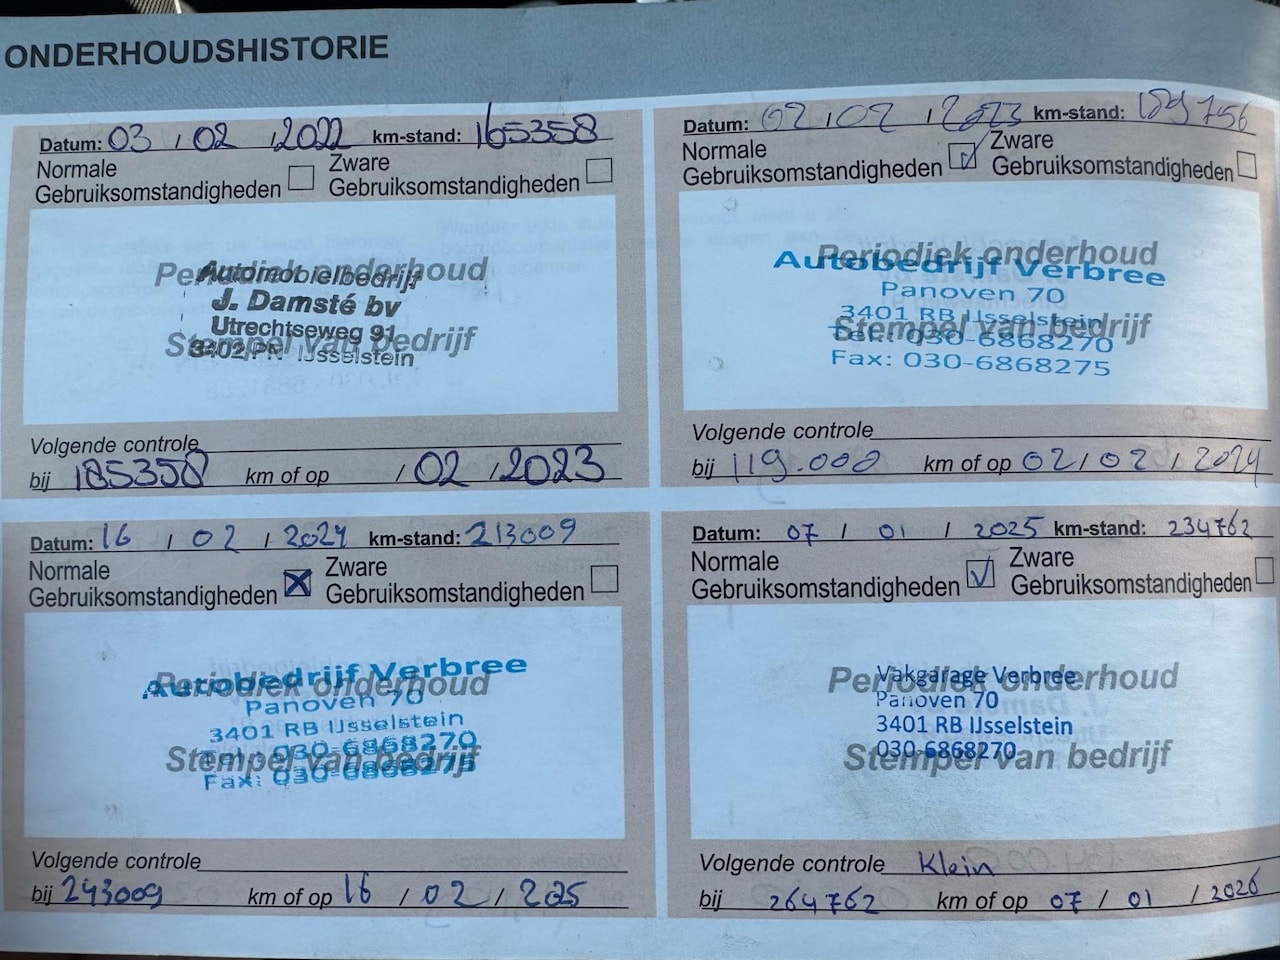 ONDERHOUDSHISTORIE
Datum: 03 / 02 / 2022 km-stand: 165358
Normale Gebruiksomstandigheden
Zware Gebruiksomstandigheden
Periodiek onderhoud
Automobielbedrijf
J. Damsté bv
Utrechtseweg 91
Stempel van bedrijf
3402 PN IJsselstein
Volgende controle
bij 185358 km of op / 02 / 2023
Datum: 02 / 02 / 2023 km-stand: 189756
Normale Gebruiksomstandigheden
Zware Gebruiksomstandigheden
Periodiek onderhoud
Autobedrijf Verbree
Panoven 70
3401 RB IJsselstein
Stempel van bedrijf
Tel.: 030-6868270
Fax: 030-6868275
Volgende controle
bij 119.000 km of op 02 / 02 / 2024
Datum: 16 / 02 / 2024 km-stand: 213009
Normale Gebruiksomstandigheden
Zware Gebruiksomstandigheden
Autobedrijf Verbree
Periodiek onderhoud
Panoven 70
3401 RB IJsselstein
030-6868270
Stempel van bedrijf
Fax: 030-6868275
Volgende controle
bij 243009 km of op 16 / 02 / 2025
Datum: 07 / 01 / 2025 km-stand: 234762
Normale Gebruiksomstandigheden
Zware Gebruiksomstandigheden
Periodiek onderhoud
Vakgarage Verbree
Panoven 70
3401 RB IJsselstein
030-6868270
Stempel van bedrijf
Volgende controle Klein
bij 264762 km of op 07 / 01 / 2026